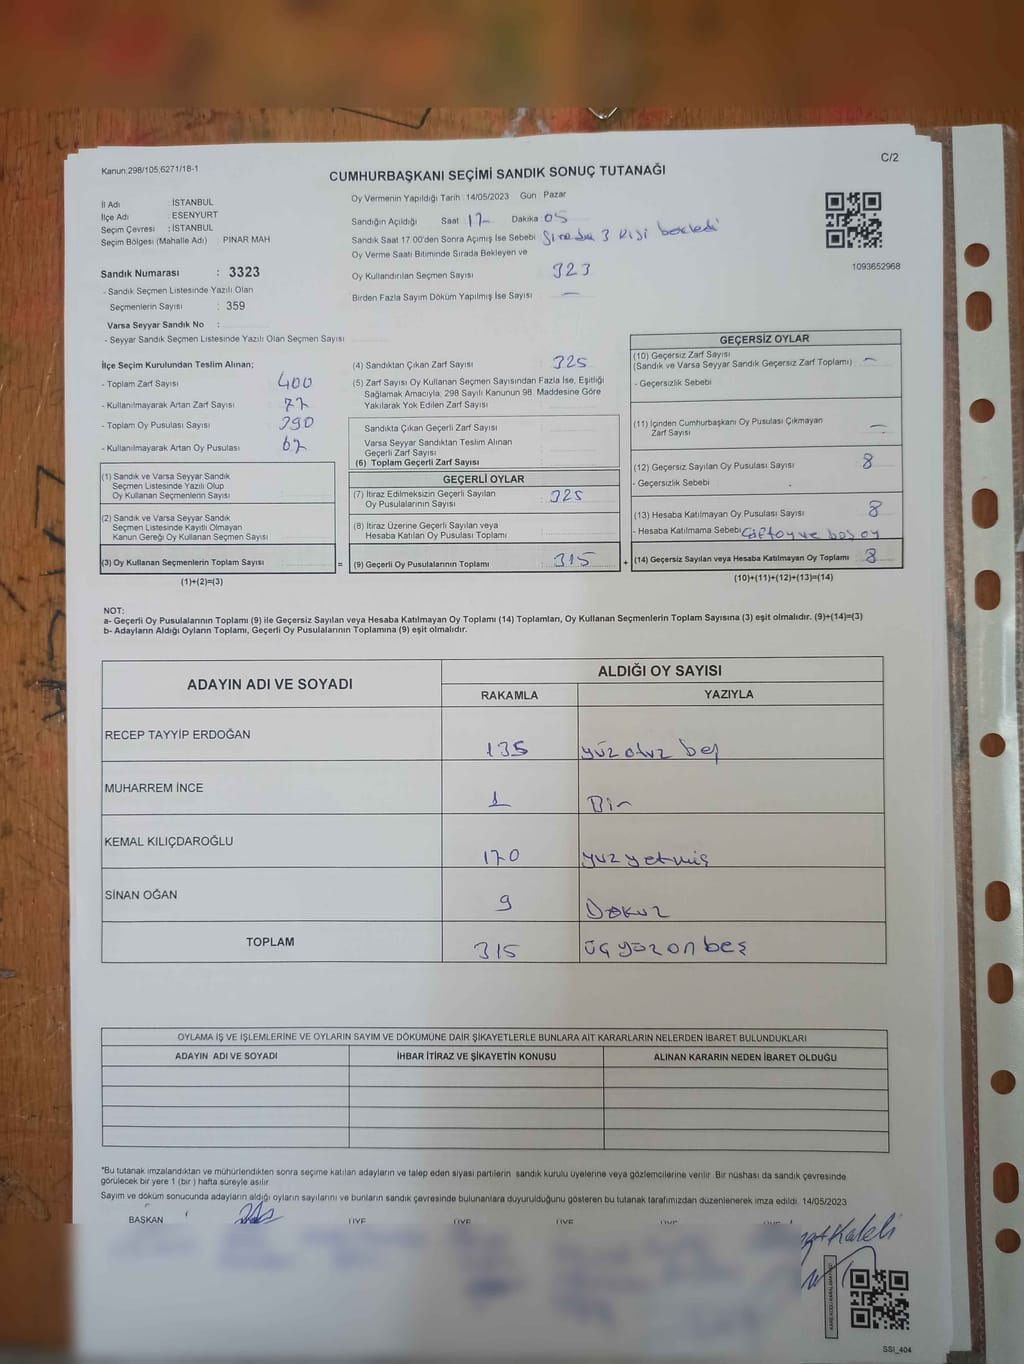 Kanun:298/105,6271/18-1
C/2
CUMHURBAŞKANI SEÇİMİ SANDIK SONUÇ TUTANAĞI
İl Adı : İSTANBUL
İlçe Adı : ESENYURT
Seçim Çevresi : İSTANBUL
Seçim Bölgesi (Mahalle Adı) : PINAR MAH
Sandık Numarası : 3323
- Sandık Seçmen Listesinde Yazılı Olan
Seçmenlerin Sayısı : 359
Varsa Seyyar Sandık No :
- Seyyar Sandık Seçmen Listesinde Yazılı Olan Seçmen Sayısı
Oy Vermenin Yapıldığı Tarih : 14/05/2023 Gün : Pazar
Sandığın Açıldığı Saat : 17 Dakika : 05
Sandık Saat 17.00'den Sonra Açımış İse Sebebi : Sırada 3 kişi bekledi
Oy Verme Saati Bitiminde Sırada Bekleyen ve
Oy Kullandırılan Seçmen Sayısı 323
Birden Fazla Sayım Döküm Yapılmış İse Sayısı —
1093652968
İlçe Seçim Kurulundan Teslim Alınan;
- Toplam Zarf Sayısı 400
- Kullanılmayarak Artan Zarf Sayısı 77
- Toplam Oy Pusulası Sayısı 390
- Kullanılmayarak Artan Oy Pusulası 67
(1) Sandık ve Varsa Seyyar Sandık
Seçmen Listesinde Yazılı Olup
Oy Kullanan Seçmenlerin Sayısı
(2) Sandık ve Varsa Seyyar Sandık
Seçmen Listesinde Kayıtlı Olmayan
Kanun Gereği Oy Kullanan Seçmen Sayısı
(3) Oy Kullanan Seçmenlerin Toplam Sayısı =
(1)+(2)=(3)
(4) Sandıktan Çıkan Zarf Sayısı 325
(5) Zarf Sayısı Oy Kullanan Seçmen Sayısından Fazla İse, Eşitliği
Sağlamak Amacıyla, 298 Sayılı Kanunun 98. Maddesine Göre
Yakılarak Yok Edilen Zarf Sayısı
Sandıkta Çıkan Geçerli Zarf Sayısı
Varsa Seyyar Sandıktan Teslim Alınan
Geçerli Zarf Sayısı
(6) Toplam Geçerli Zarf Sayısı
GEÇERLİ OYLAR
(7) İtiraz Edilmeksizin Geçerli Sayılan
Oy Pusulalarının Sayısı : 325
(8) İtiraz Üzerine Geçerli Sayılan veya
Hesaba Katılan Oy Pusulası Toplamı
(9) Geçerli Oy Pusulalarının Toplamı 315 +
GEÇERSİZ OYLAR
(10) Geçersiz Zarf Sayısı
(Sandık ve Varsa Seyyar Sandık Geçersiz Zarf Toplamı) : —
- Geçersizlik Sebebi
(11) İçinden Cumhurbaşkanı Oy Pusulası Çıkmayan
Zarf Sayısı —
(12) Geçersiz Sayılan Oy Pusulası Sayısı 8
- Geçersizlik Sebebi
(13) Hesaba Katılmayan Oy Pusulası Sayısı 8
- Hesaba Katılmama Sebebi Çift oy ve boş oy
(14) Geçersiz Sayılan veya Hesaba Katılmayan Oy Toplamı 8
(10)+(11)+(12)+(13)=(14)
NOT:
a- Geçerli Oy Pusulalarının Toplamı (9) ile Geçersiz Sayılan veya Hesaba Katılmayan Oy Toplamı (14) Toplamları, Oy Kullanan Seçmenlerin Toplam Sayısına (3) eşit olmalıdır. (9)+(14)=(3)
b- Adayların Aldığı Oyların Toplamı, Geçerli Oy Pusulalarının Toplamına (9) eşit olmalıdır.
ADAYIN ADI VE SOYADI ALDIĞI OY SAYISI
RAKAMLA YAZIYLA
RECEP TAYYİP ERDOĞAN 135 yüz otuz beş
MUHARREM İNCE 1 Bir
KEMAL KILIÇDAROĞLU 170 yüz yetmiş
SİNAN OĞAN 9 Dokuz
TOPLAM 315 üç yüz on beş
OYLAMA İŞ VE İŞLEMLERİNE VE OYLARIN SAYIM VE DÖKÜMÜNE DAİR ŞİKAYETLERLE BUNLARA AİT KARARLARIN NELERDEN İBARET BULUNDUKLARI
ADAYIN ADI VE SOYADI İHBAR İTİRAZ VE ŞİKAYETİN KONUSU ALINAN KARARIN NEDEN İBARET OLDUĞU
*Bu tutanak imzalandıktan ve mühürlendikten sonra seçime katılan adayların ve talep eden siyasi partilerin sandık kurulu üyelerine veya gözlemcilerine verilir. Bir nüshası da sandık çevresinde
görülecek bir yere 1 (bir) hafta süreyle asılır.
Sayım ve döküm sonucunda adayların aldığı oyların sayılarını ve bunların sandık çevresinde bulunanlara duyurulduğunu gösteren bu tutanak tarafımızdan düzenlenerek imza edildi. 14/05/2023
BAŞKAN ÜYE ÜYE ÜYE ÜYE
SSI_404